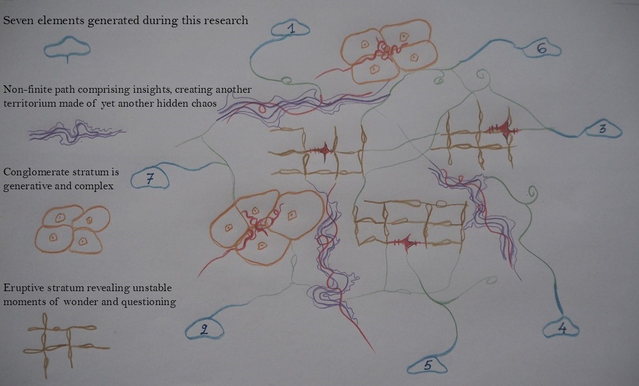 Seven elements generated during this research
1
6
Non-finite path comprising insights, creating another
territorium made of yet another hidden chaos
3
Conglomerate stratum is
generative and complex
7
Eruptive stratum revealing unstable
moments of wonder and questioning
2
4
5